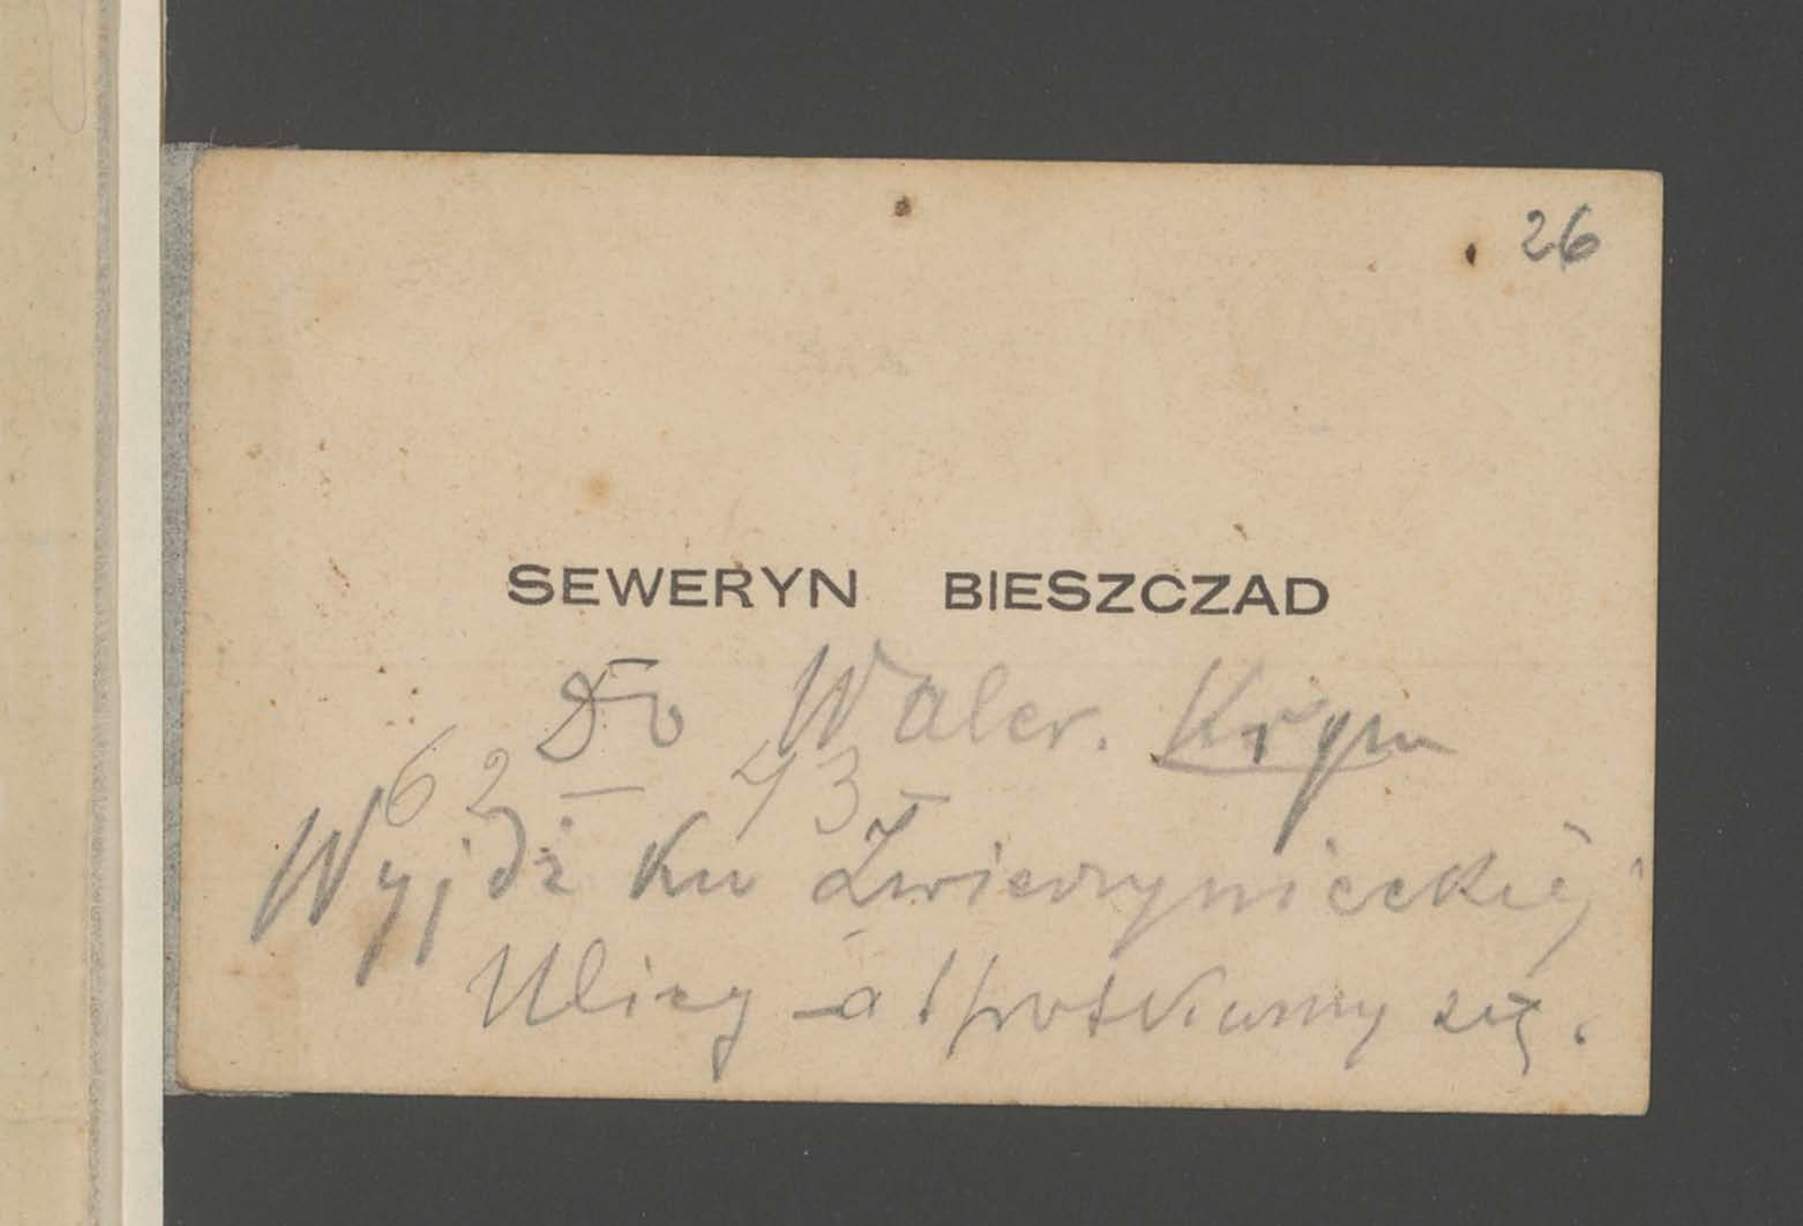 26
SEWERYN BIESZCZAD
Do Waler. Krym
62 — 43
Wyjdź ku Zwierzynieckiej
Ulicy — a spotkamy się.